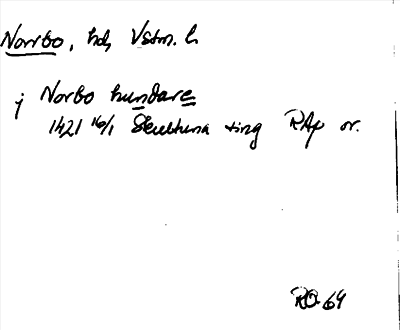 Norrbo, hd, Vstm. l.
j Norbo hundare
1421 16/1 Skultuna ting RAp or.
RO. 69